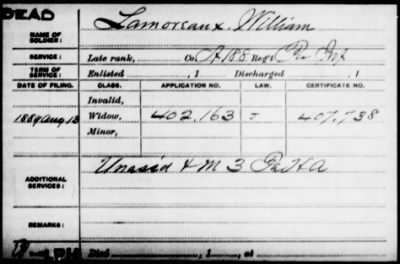 DEAD
Lamoreaux, William
NAME OF SOLDIER:
SERVICE: Late rank, Co. A 188 Reg't Pa Inf
TERM OF SERVICE: Enlisted , 1 Discharged , 1
DATE OF FILING. CLASS. APPLICATION NO. LAW. CERTIFICATE NO.
Invalid,
1889 Aug 13 Widow, 402,163 J 407,738
Minor,
ADDITIONAL SERVICES: Unasid & M 3 Pa H A
REMARKS:
Died , 1 , at